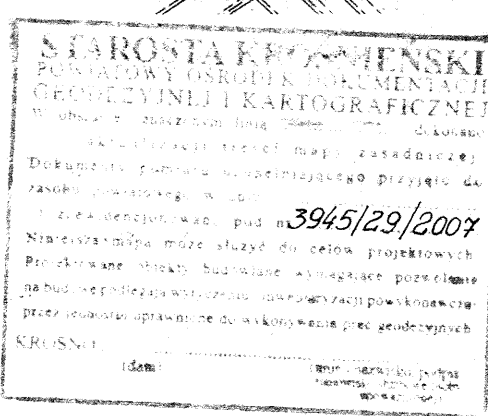 STAROSTA KROŚNIEŃSKI
POWIATOWY OŚRODEK DOKUMENTACJI
GEODEZYJNEJ I KARTOGRAFICZNEJ
W obszarze znaczonym linią dokonano
aktualizacji treści mapy zasadniczej
Dokumenty pomiaru uzupełniającego przyjęto do
zasobu powiatowego w dniu
i zaewidencjonowano pod nr 3945/29/2007
Niniejsza mapa może służyć do celów projektowych
Projektowane obiekty budowlane wymagające pozwolenia
na budowę podlegają wytyczeniu i inwentaryzacji powykonawczej
przez jednostki uprawnione do wykonywania prac geodezyjnych
KROSNO
(data) (imię i nazwisko, podpis